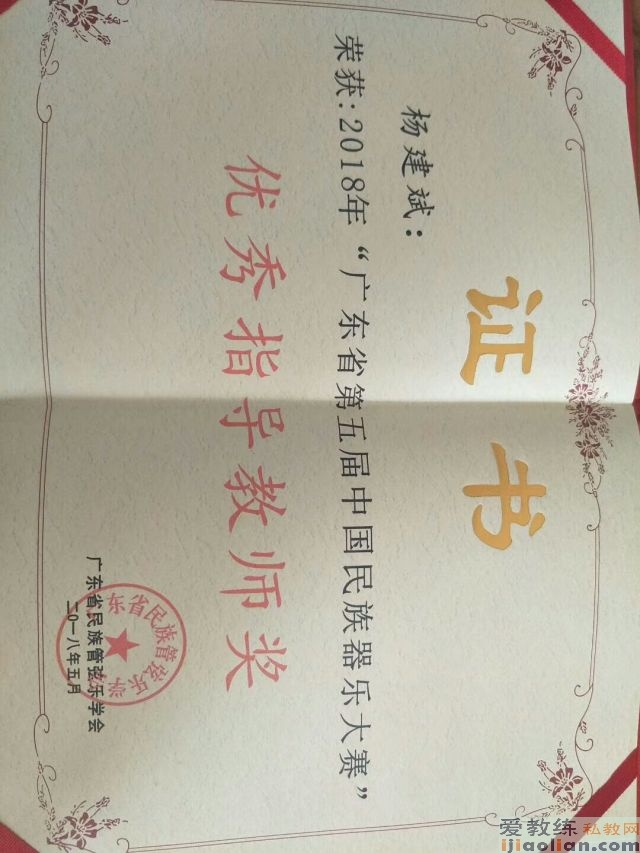 证书
杨建斌：
荣获：2018年“广东省第五届中国民族器乐大赛”
优秀指导教师奖
广东省民族管弦乐学会
二〇一八年五月
东省民族管弦乐学
爱教练私教网
ijiaolian.com